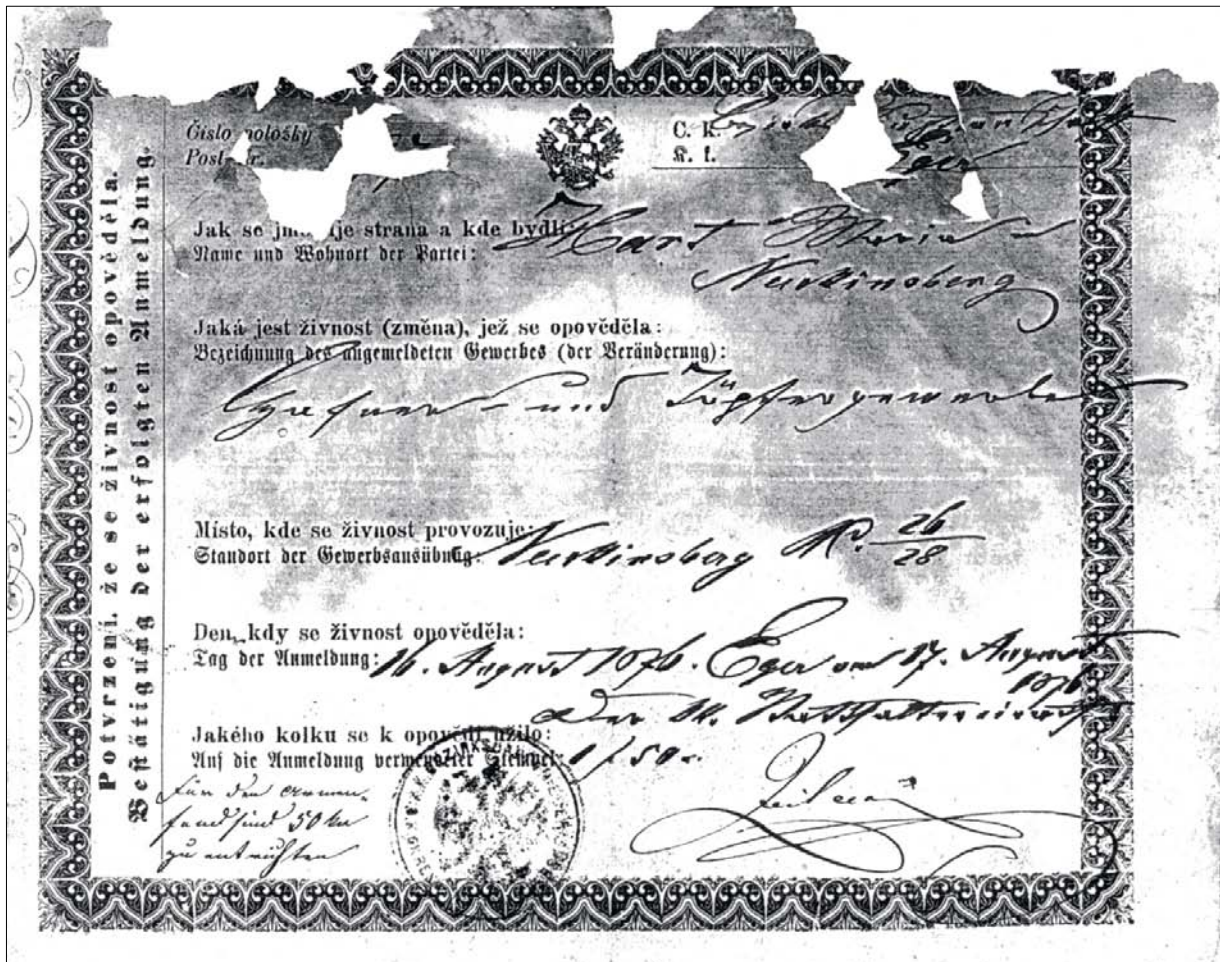 Potvrzení, že se živnost opověděla.
Bestätigung der erfolgten Anmeldung.
Číslo položky
Post
C. k.
K. k.
Eger
Jak se jmenuje strana a kde bydlí:
Name und Wohnort der Partei:
Neukinsberg
Jaká jest živnost (změna), jež se opověděla:
Bezeichnung des angemeldeten Gewerbes (der Veränderung):
Hafner- und Töpfergewerbe
Místo, kde se živnost provozuje:
Standort der Gewerbsausübung: Neukinsberg N. 26/28
Den, kdy se živnost opověděla:
Tag der Anmeldung: 16. August 1876. Eger am 17. August
1876
Der k.k.
Jakého kolku se k opovědi užilo:
Auf die Anmeldung verwendeter Stempel: 1 f 50
Für den Armen-
fond sind 50 kr
zu entrichten